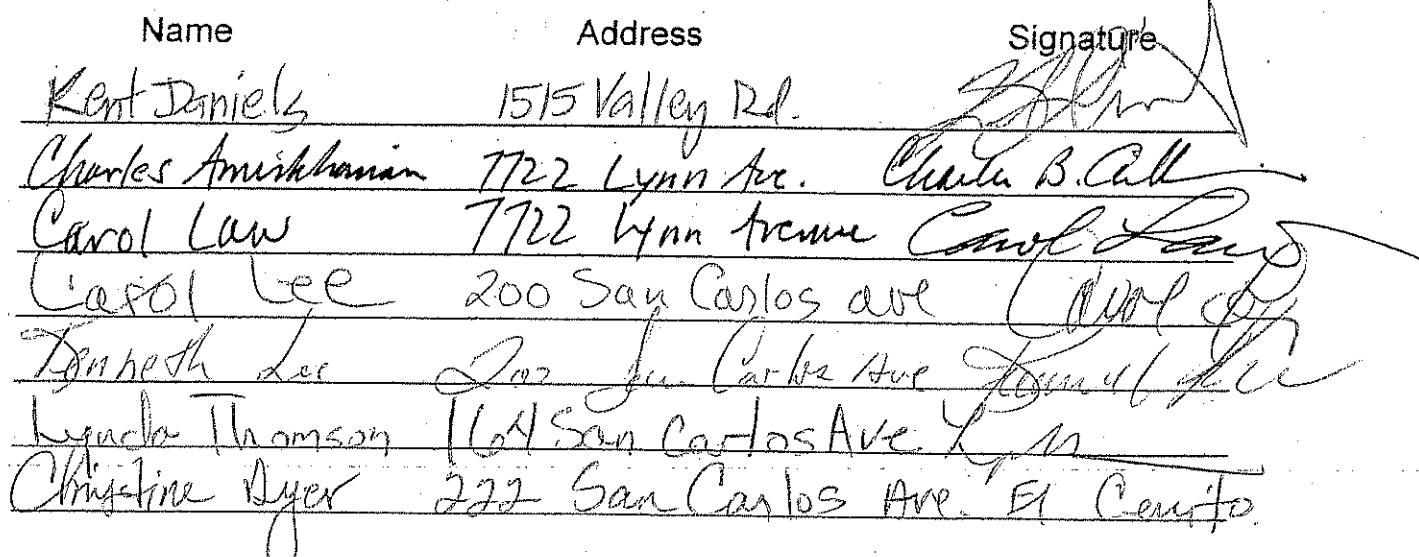 Name Address Signature
Kent Daniels 1515 Valley Rd.
Charles Amirkhanian 7722 Lynn Ave. Charles B.
Carol Law 7722 Lynn Avenue Carol Law
Carol Lee 200 San Carlos ave Carol
Kenneth Lee 200 San Carlos Ave Kenneth Lee
Lynda Thomson 164 San Carlos Ave.
Christine Dyer 222 San Carlos Ave. El Cerrito